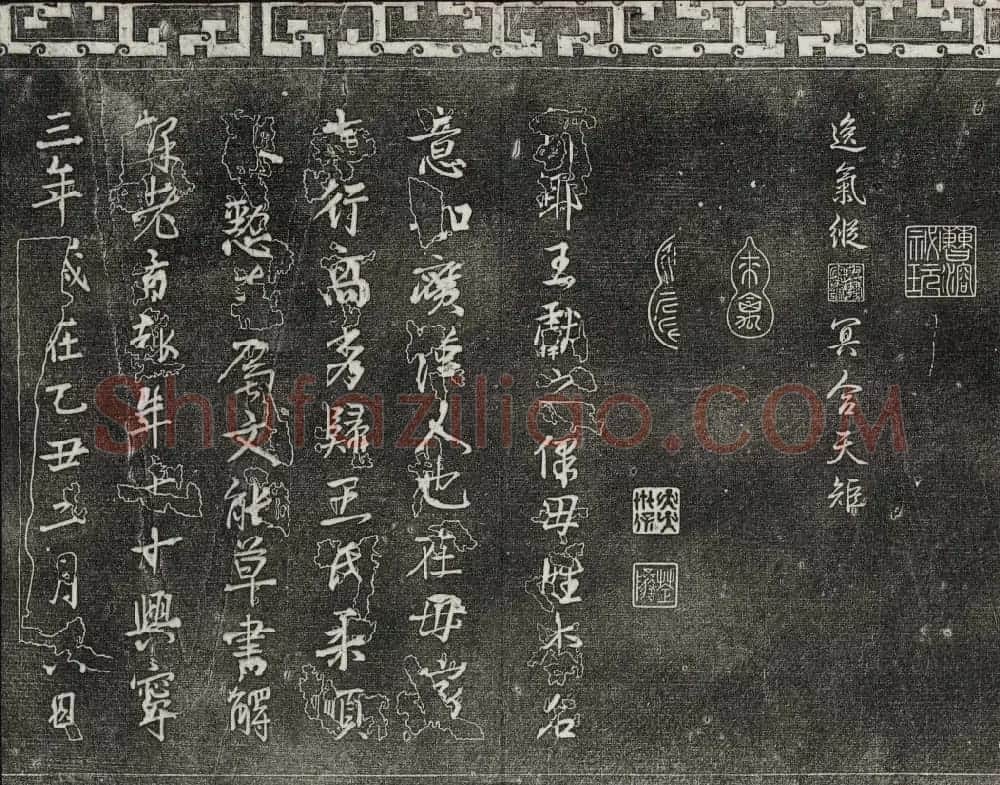 逸氣縱冥合天矩
曹溶祕玩
郎耶王獻之保母姓李名
意如廣漢人也在母家
志行高秀歸王氏柔順
恭懃善屬文能草書解
釋老旨趣年七十興寧
三年歲在乙丑二月六日
Shufaziliao.COM